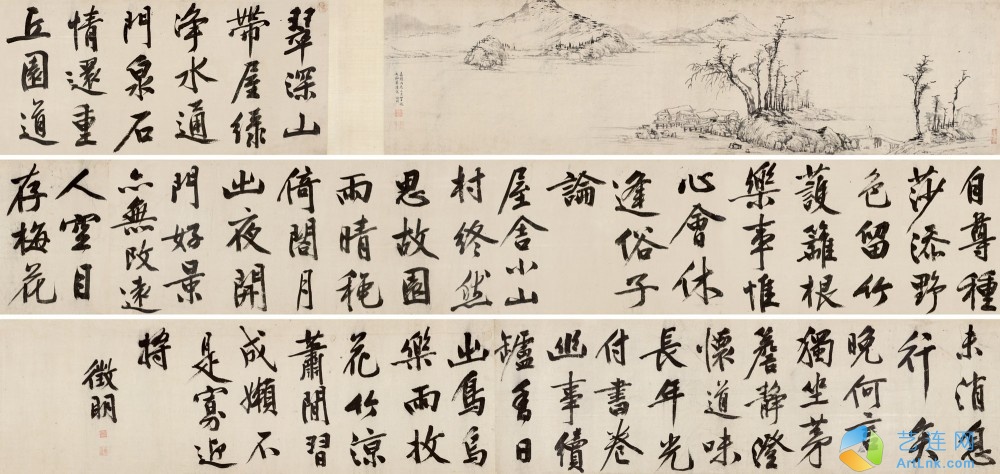 翠深山
帶屋緑
净水通
門泉石
情還重
丘園道
自尊種
莎添野
色留竹
護籬根
樂事惟
心會休
逢俗子
論
屋舍小山
村終然
思故園
雨晴穐
倚閣月
出夜開
門好景
亦無改遠
人空目
存梅花
未消息
行矣
晚何言
獨坐茅
簷静澄
懷道味
長年光
付書卷
幽事續
罏香日
出鳥烏
樂雨收
花竹凉
蕭閒習
成嬾不
是寡近
將
徵明
艺连网
ArtLnk.com